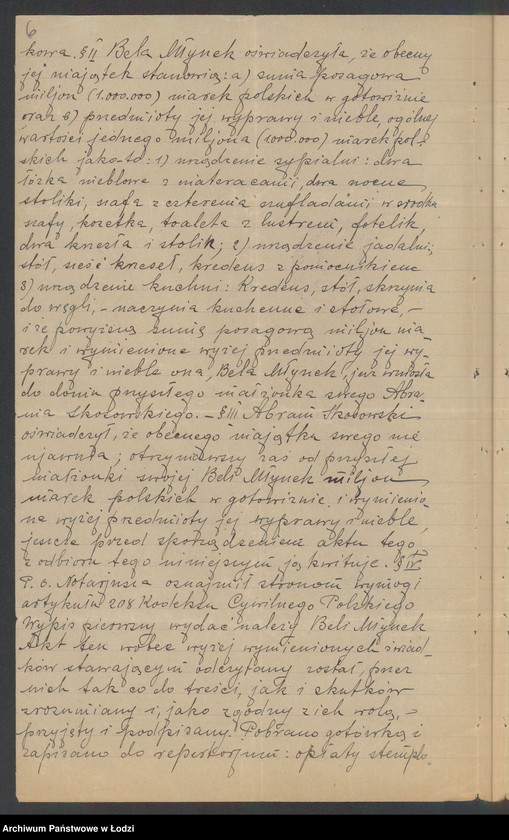 6
kowa. § II Bela Młynek oświadczyła, że obecny
jej majątek stanowią: a) suma posagowa
miljon (1.000.000) marek polskich w gotowiźnie
oraz b) przedmioty jej wyprawy i meble, ogólnej
wartości jednego miljona (1000.000) marek pol-
skich jako-to: 1) urządzenie sypialni: dwa
łóżka meblowe z materacami, dwa nocne
stoliki, szafa z czterema szufladami w środku
szafy, kozetka, toaleta z lustrem, fotelik,
dwa krzesła i stolik; 2) urządzenie jadalni:
stół, sześć krzeseł, kredens z pomocnikiem
3) urządzenie kuchni: Kredens, stół, skrzynia
do węgli, – naczynia kuchenne i stołowe, –
i że powyższą sumę posagową miljon ma-
rek i wymienione wyżej przedmioty jej wy-
prawy i meble ona, Bela Młynek, już wniosła
do domu przyszłego małżonka swego Abra-
ma Skosowskiego. – § III Abram Skosowski
oświadczył, że obecnego majątku swego nie
ujawnia; otrzymawszy zaś od przyszłej
małżonki swojej Beli Młynek miljon
marek polskich w gotowiźnie i wymienio-
ne wyżej przedmioty jej wyprawy i meble,
jeszcze przed sporządzeniem aktu tego
z odbioru tego niniejszym ją kwituje. § IV
P. o. Notarjusza oznajmił stronom wymogi
artykułu 208 Kodeksu Cywilnego Polskiego
Wypis pierwszy wydać należy Beli Młynek
Akt ten wobec wyżej wymienionych świad-
ków stawającym odczytany został, przez
nich tak co do treści, jak i skutków
zrozumiany i, jako zgodny z ich wolą, –
przyjęty i podpisany. Pobrano gotówką i
zapisano do repertorjum: opłaty stemplo-
Archiwum Państwowe w Łodzi